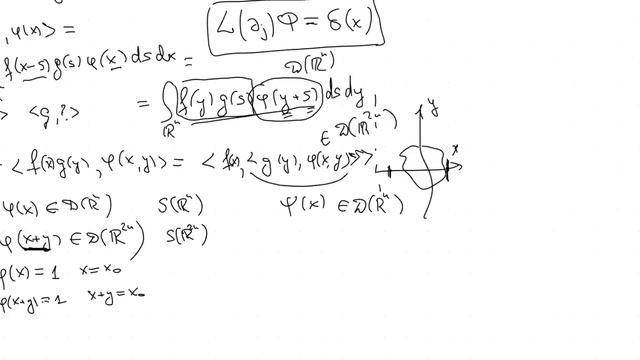 , φ(x)> =
L(∂ⱼ)φ = δ(x)
f(x-s)g(s)φ(x)dsdx =
D(ℝⁿ)
<g,?> = ∫ f(y)g(s)φ(y+s)dsdy
ℝⁿ
∈ D(ℝ²ⁿ)
y
x
<f(x)g(y), φ(x,y)> = <f(x), <g(y), φ(x,y)>>
φ(x) ∈ D(ℝⁿ) S(ℝⁿ) Ψ(x) ∈ D(ℝⁿ)
φ(x+y) ∈ D(ℝ²ⁿ) S(ℝ²ⁿ)
φ(x) = 1 x = x₀
φ(x+y) = 1 x+y = x₀